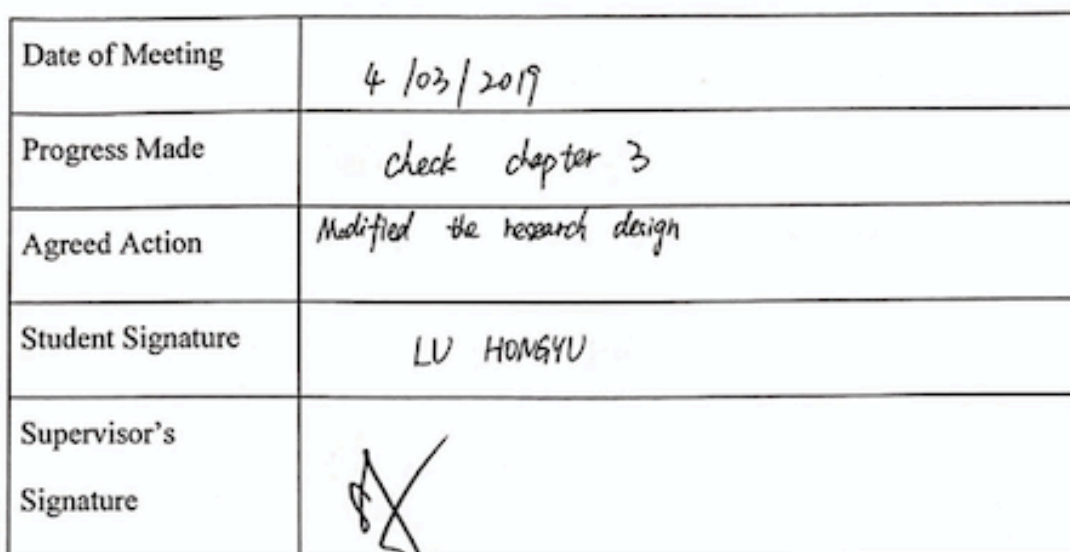 Date of Meeting
4 /03/2019
Progress Made
check chapter 3
Agreed Action
Modified the research design
Student Signature
LU HONGYU
Supervisor's
Signature